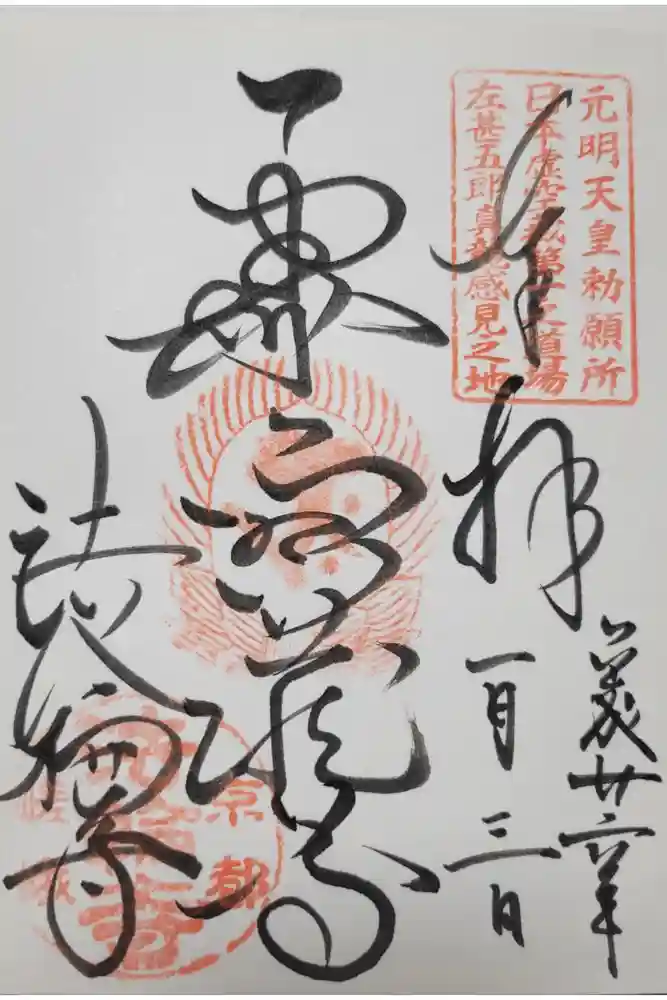 元明天皇勅願所
日本虚空蔵第一之道場
左甚五郎真龍感見之地
奉拝
一月三日
虚空蔵
法輪寺
京都
嵯峨